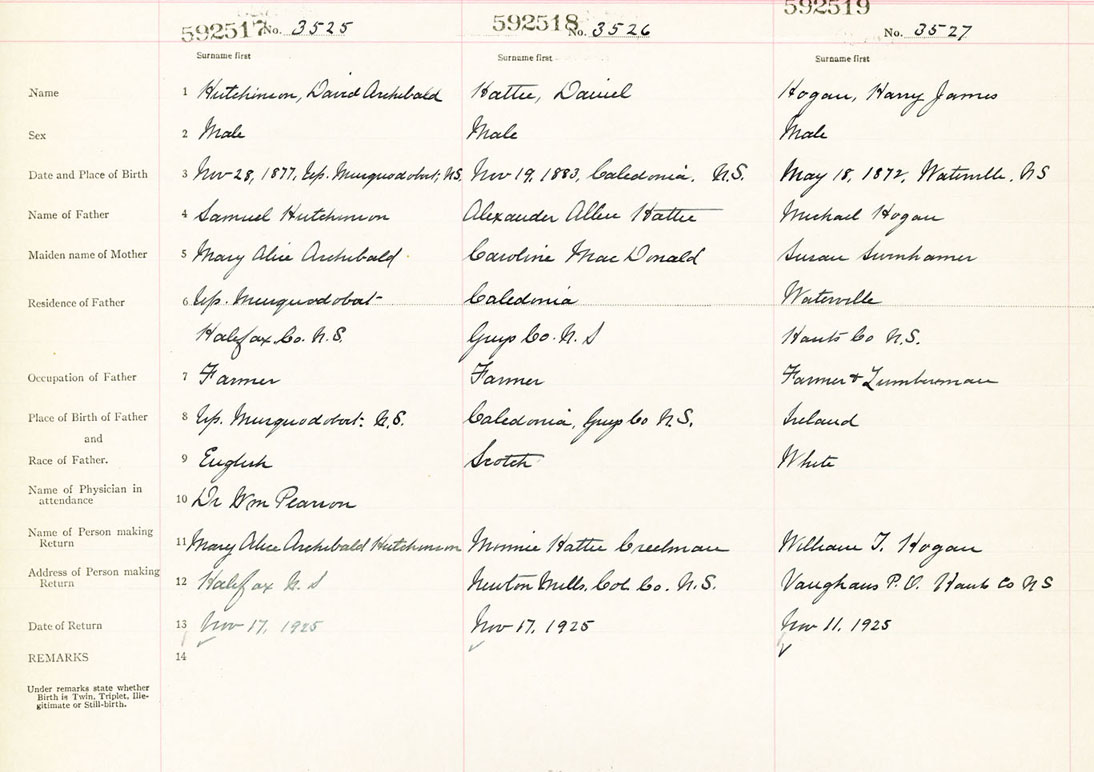 592517 No. 3525 592518 No. 3526 592519 No. 3527
Surname first Surname first Surname first
Name 1 Hutchinson, David Archibald Hattie, Daniel Hogan, Harry James
Sex 2 Male Male Male
Date and Place of Birth 3 Nov 28, 1877, Up. Musquodoboit, N.S. Nov 19, 1883, Caledonia, N.S. May 18, 1872, Waterville, NS
Name of Father 4 Samuel Hutchinson Alexander Allen Hattie Michael Hogan
Maiden name of Mother 5 Mary Alice Archibald Caroline MacDonald Susan
Residence of Father 6 Up. Musquodoboit Caledonia Waterville
Halifax Co. N.S. Guys Co. N.S Hants Co N.S.
Occupation of Father 7 Farmer Farmer Farmer & Lumberman
Place of Birth of Father 8 Up. Musquodoboit. N.S. Caledonia, Guys Co N.S. Ireland
and
Race of Father. 9 English Scotch White
Name of Physician in
attendance 10 Dr Wm Pearson
Name of Person making
Return 11 Mary Alice Archibald Hutchinson Minnie Hattie Creelman William T. Hogan
Address of Person making
Return 12 Halifax N.S Newton Mills, Col. Co. N.S. Vaughans P.O. Hants Co NS
Date of Return 13 Nov 17, 1925 Nov 17, 1925 Nov 11, 1925
REMARKS 14
Under remarks state whether
Birth is Twin, Triplet, Ille-
gitimate or Still-birth.